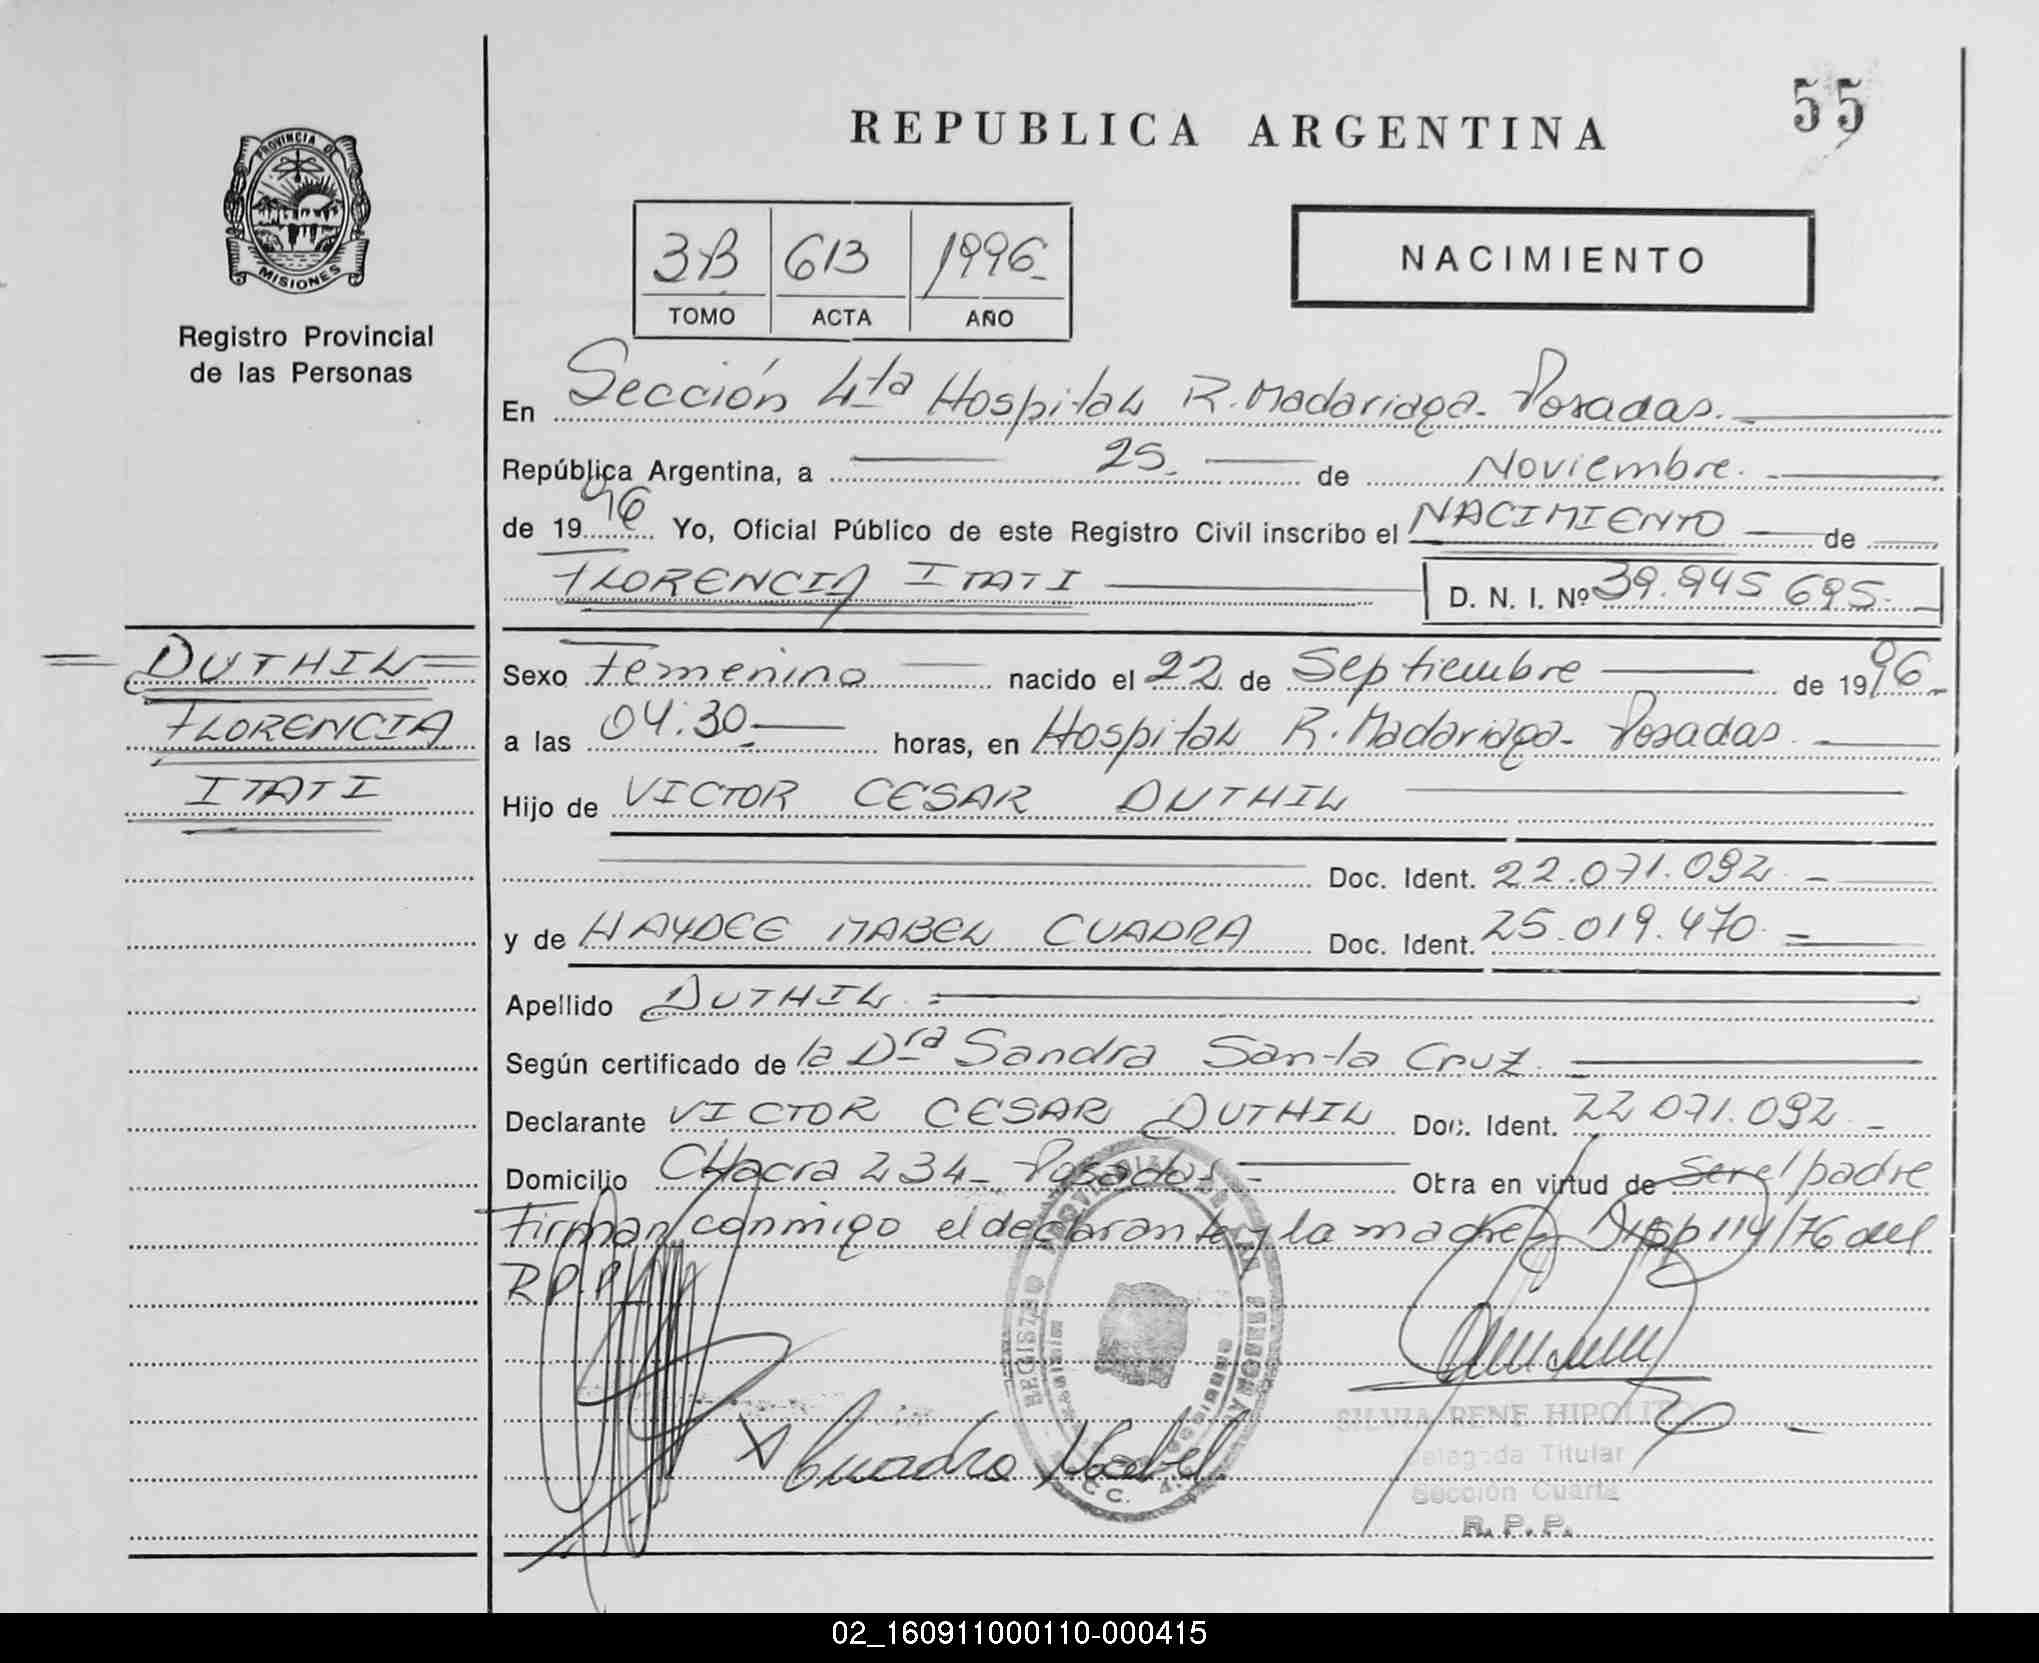 55
REPUBLICA ARGENTINA
PROVINCIA DE
MISIONES
Registro Provincial
de las Personas
3B 613 1996
TOMO ACTA AÑO
NACIMIENTO
En Sección 4ta Hospital R. Madariaga - Posadas.
República Argentina, a 25 de Noviembre.
de 1996 Yo, Oficial Público de este Registro Civil inscribo el NACIMIENTO de
FLORENCIA ITATI D. N. I. Nº 39.945 695.
DUTHIL
FLORENCIA
ITATI
Sexo Femenino nacido el 22 de Septiembre de 1996
a las 04:30 horas, en Hospital R. Madariaga - Posadas
Hijo de VICTOR CESAR DUTHIL
Doc. Ident. 22.071.092
y de HAYDEE MABEL CUADRA Doc. Ident. 25.019.470
Apellido DUTHIL
Según certificado de la Dra Sandra Santa Cruz
Declarante VICTOR CESAR DUTHIL Doc. Ident. 22 071.092
Domicilio CHacra 234 - Posadas Obra en virtud de ser el padre
Firman conmigo el declarante y la madre Disp 114/76 del
R.P.P.
Cuadra Mabel
REGISTRO PROVINCIAL DE LAS PERSONAS
SILVIA RENE HIPOLITO
Delegada Titular
Sección Cuarta
R. P. P.
02_160911000110-000415